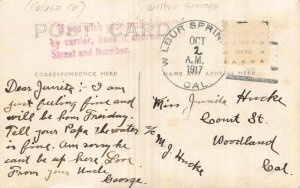 (Colusa Co)
Wilbur Springs
POST CARD
If you wish your mail
by carrier, have it
Street and Number.
WILBUR SPRINGS
OCT
2
A.M.
1917
CAL.
CORRESPONDENCE HERE
NAME AND ADDRESS HERE
Dear Junita:- I am
Just feeling fine and
will be home Friday
Tell your Papa the water
is fine. Am sorry he
cant be up here Love
From your Uncle
George.
Miss Junida Hucke
c/o
M J Hucke
Court St.
Woodland
Cal.